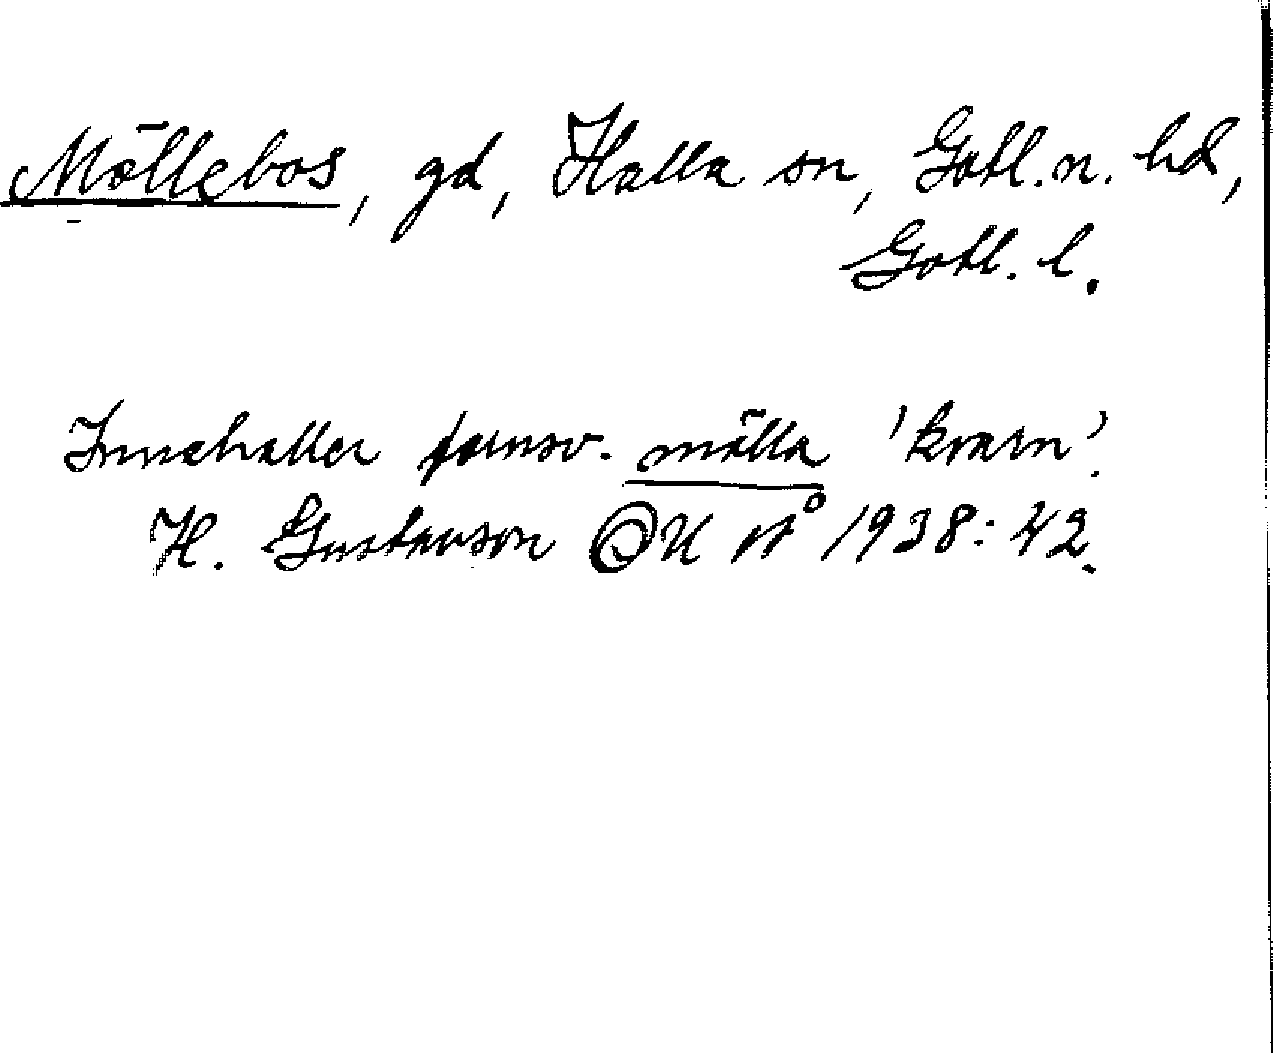 Möllebos, gd, Halla sn, Gotl. n. hd,
Gotl. l.
Innehåller fornsv. mölla 'kvarn'.
H. Gustavson OUÅ 1938: 42.